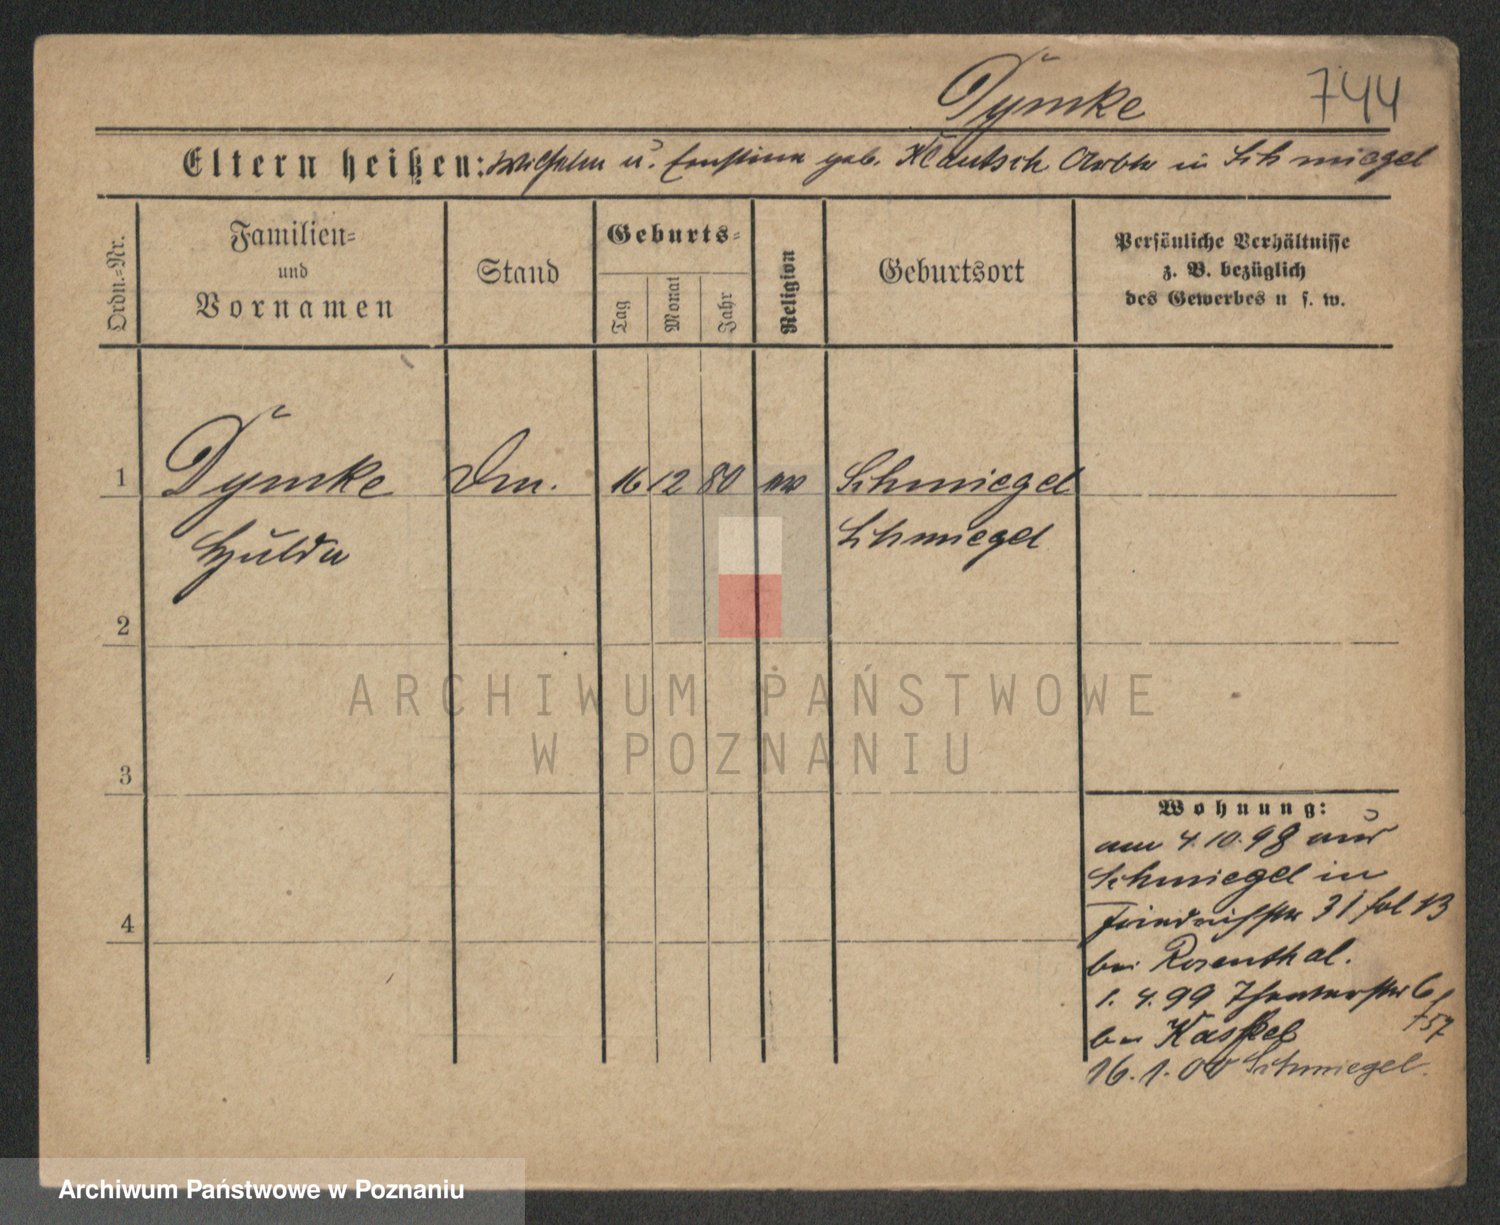 Dymke 744
Eltern heißen: Wilhelm u. Ernstine geb. Klautsch Arbtr in Schmiegel
Ordn.-Nr.
Familien-
und
Vornamen
Stand
Geburts-
Tag
Monat
Jahr
Religion
Geburtsort
Persönliche Verhältnisse
z. B. bezüglich
des Gewerbes u s. w.
1 Dymke Dm. 16 12 80 ev Schmiegel
Hulda Schmiegel
2
ARCHIWUM PAŃSTWOWE
W POZNANIU
3
Wohnung:
am 4.10.98 aus
Schmiegel in
4 Friedrichstr 31 fol 13
bei Rosenthal.
1. 4. 99 Theaterstr 6
bei Kaskel 757
16.1.00 Schmiegel.
Archiwum Państwowe w Poznaniu